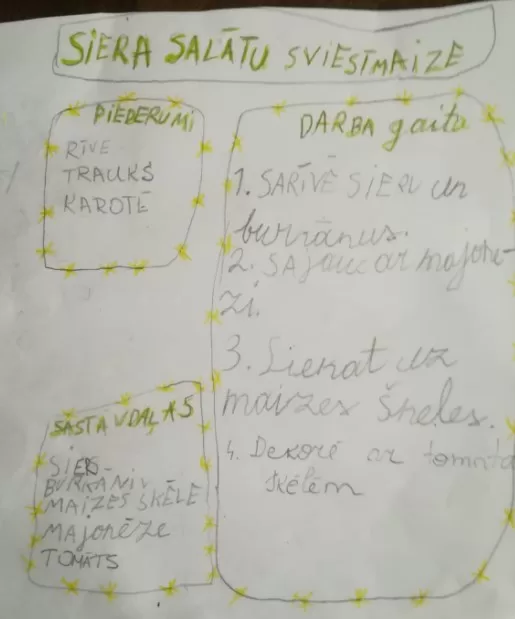 SIERA SALĀTU SVIESTMAIZE
PIEDERUMI
RĪVE
TRAUKS
KAROTĒ
SASTĀVDAĻAS
SIERS
BURKĀNIV
MAIZES ŠĶĒLE
MAJONĒZE
TOMĀTS
DARBA gaita
1. SARĪVĒ SIERU un
burkānus.
2. SAJauc ar majonē-
zi.
3. Liekat uz
maizes šķeles.
4. Dekorē ar tomāta
šķēlēm